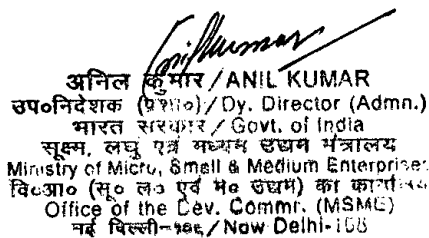 Anil Kumar
अनिल कुमार / ANIL KUMAR
उप०निदेशक (प्रशा०) / Dy. Director (Admn.)
भारत सरकार / Govt. of India
सूक्ष्म, लघु एवं मध्यम उद्यम मंत्रालय
Ministry of Micro, Small & Medium Enterprises
वि०आ० (सू० ल० एवं म० उद्यम) का कार्यालय
Office of the Dev. Commr. (MSME)
नई दिल्ली / New Delhi-108